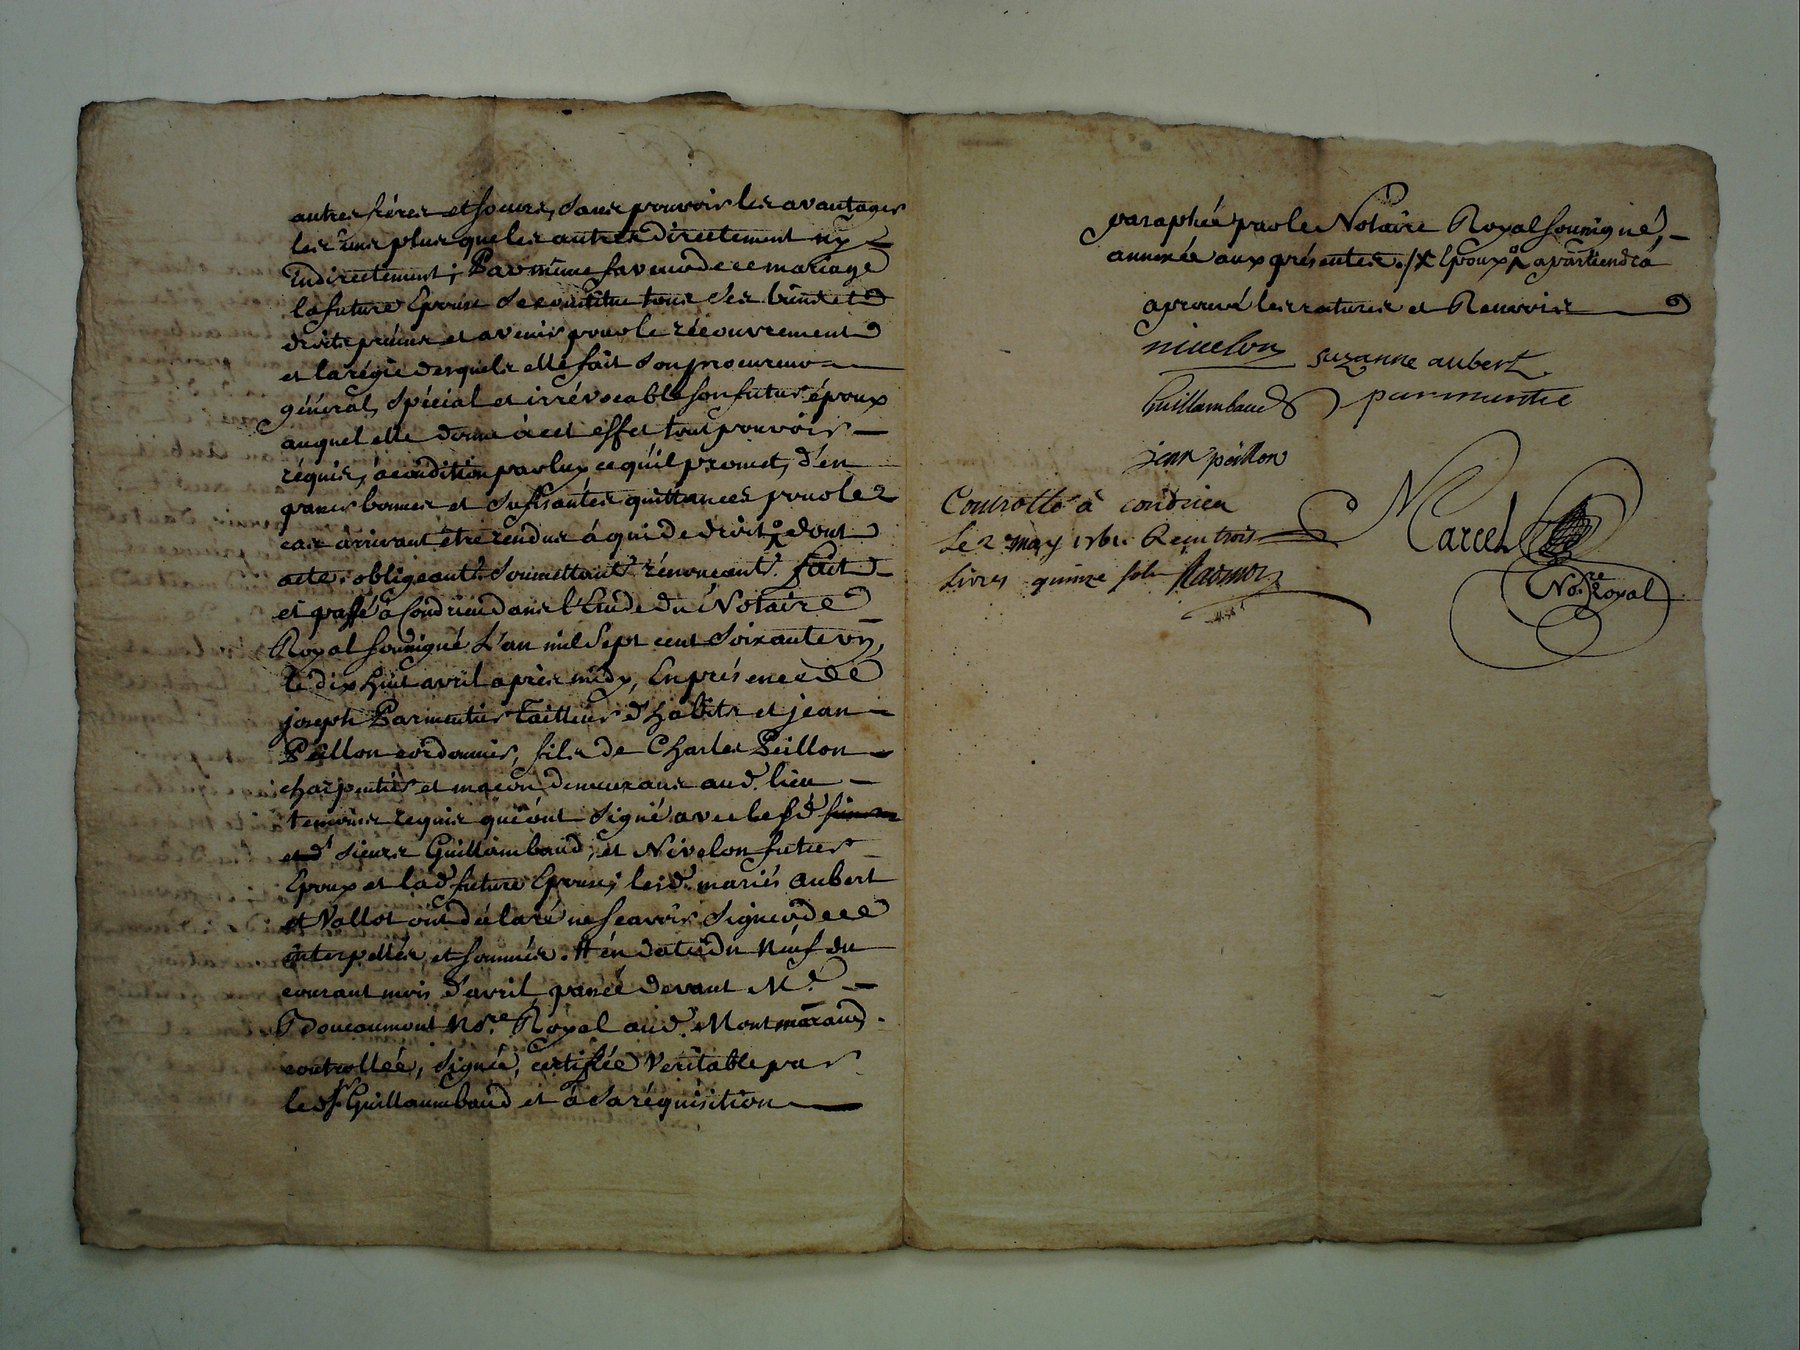 autres fréres et soeurs, sans pouvoir les avantager
les uns plus que les autres directement ny
Indirectement; Par même faveur de ce mariage
la future Epouse se constitue tous ses biens et
droits présens et avenir pour le récouvrement
et la régie desquels elle fait son procureur
général, spécial et irrévocable son futur époux
auquel elle donne à cet effet tout pouvoir
réquis, à condition par luy ce qu'il promet, d'en
passer bonnes et suffisantes quittances pour les
cas arrivant être rendus à qui de droit dont
acte. obligeants soumettants rénonçants. fait
et passé à Condrieu dans l'Etude du Notaire
Royal soussigné L'an mil sept cent soixante un,
le dix huit avril après midy, En présence de
joseph Parmentier tailleur d'habits et jean
Peillon cordonnier, fils de Charles Peillon
charpentier et maçon demeurans aud. lieu
temoins requis qui ont signé avec lesd.
et d' sieurs Guillambaud, et Nivelon futur
Epoux et lad. future Epouse; lesd. mariés Aubert
et Vallot ont déclaré ne sçavoir signer de ce
interpellés et sommés. # en date du Neuf du
courant mois d'avril, passée devant Me.
Doucaumont Nore. Royal aud. Montmaraud.
controllée, signée, certifiée Veritable par
led. Sr. Guillaumbaud et à sa réquisition
paraphée par le Notaire Royal soussigné,
annexée aux présentes ./. Epoux apartiendra
aprouvé les ratures et Renvois
nivelon suzanne aubert
Guillambaud parmentie
jean peillon
Controllé à condrieu
Le 2 may 1761 Reçu trois
Livres quinze sols
Marcel
Nore. Royal